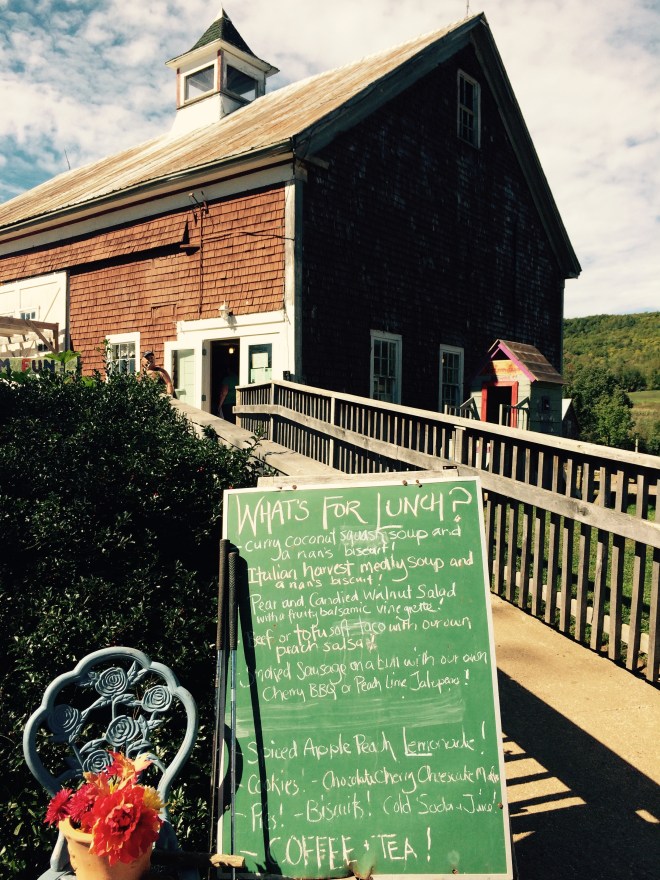 WHAT'S FOR LUNCH?
- curry coconut squash soup and
a nan's biscuit!
Italian harvest medly soup and
a nan's biscuit!
Pear and Candied Walnut Salad
with a fruity balsamic vinegrette!
Beef or tofu soft taco with our own
peach salsa!
Smoked Sausage on a bun with our own
Cherry BBQ or Peach Lime Jalapeno!
Spiced Apple Peach Lemonade!
- Cookies! - Chocolate Cherry Cheesecake
- Pies! - Biscuits! Cold Soda + Juice!
- COFFEE + TEA!